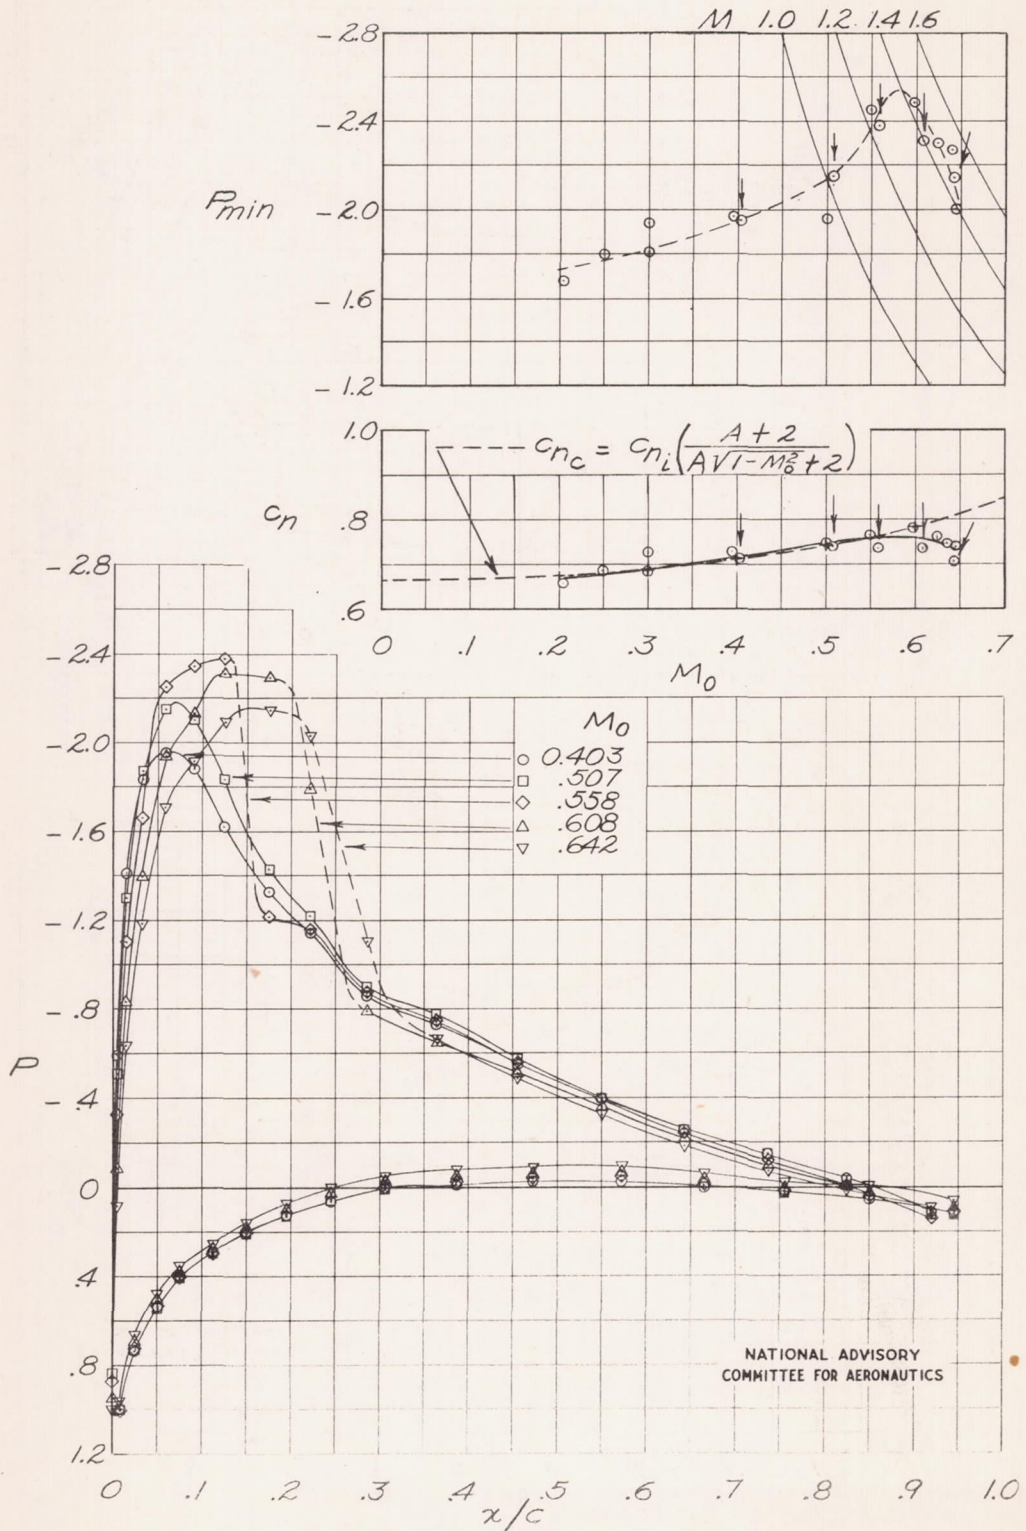 M 1.0 1.2 1.4 1.6
- 2.8
- 2.4
Pmin - 2.0
- 1.6
- 1.2
1.0
cnc = cni(A + 2 / A√1-M₀² + 2)
cn .8
.6
0 .1 .2 .3 .4 .5 .6 .7
M₀
- 2.8
- 2.4
- 2.0
- 1.6
- 1.2
- .8
P
- .4
0
.4
.8
1.2
M₀
0.403
.507
.558
.608
.642
NATIONAL ADVISORY
COMMITTEE FOR AERONAUTICS
0 .1 .2 .3 .4 .5 .6 .7 .8 .9 1.0
x/c